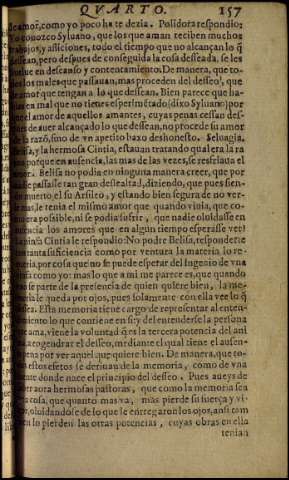 QVARTO. 157
amor, como yo poco ha te dezia. Polidora respondio:
conozco Syluano, que los que aman reciben muchos
y afliciones, todo el tiempo que no alcançan lo q̃
pero despues de conseguida la cosa desseada, se les
en descanso y contentamiento. De manera, que to-
los males que passauan, mas proceden del desseo, que
amor que tengan a lo que dessean. Bien parece que ha
en mal que no tienes esperimẽtado (dixo Syluano) por
el amor de aquellos amantes, cuyas penas cessan des-
de auer alcançado lo que dessean, no procede su amor
la razõ, sino de vn apetito baxo deshonesto. Seluagia,
y la hermosa Cintia, estauan tratando qual era la ra
porque en ausencia, las mas de las vezes, se resfriaua el
Belisa no podia en ninguna manera creer, que por
passasse tan gran deslealtad, diziendo, que pues sien-
muerto, el su Arsileo, y estando bien segura de no ver-
le tenia el mismo amor que quando viuia, que co-
era possible, ni se podia sufrir, que nadie oluidasse en
los amores que en algun tiempo esperasse ver?
Cintia le respondio: No podre Belisa, responderte
tanta suficiencia como por ventura la materia lo re-
por ser cosa que no se puede esperar del ingenio de vna
como yo: mas lo que a mi me parece es, que quando
se parte de la presencia de quien quiere bien, la me-
le queda por ojos, pues solamente con ella vee lo q̃
Esta memoria tiene cargo de representar al enten-
lo que contiene en si: y del entenderse la persona
ama, viene la voluntad q̃ es la tercera potencia del ani
a engendrar el desseo, mediante el qual tiene el ausen-
pena por ver aquel que quiere bien. De manera, que to-
estos efetos se deriuan de la memoria, como de vna
donde nace el principio del desseo. Pues aueys de
aora hermosas pastoras, que como la memoria sea
cosa, que quanto mas va, mas pierde su fuerça y vi-
oluidandose de lo que le entregaron los ojos, ansi tam
lo pierden las otras potencias, cuyas obras en ella
tenian